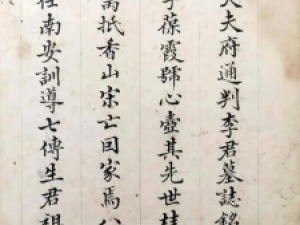 大夫府通判李君墓誌銘
字葆霞號心壺其先世桂
萬抵香山宋亡回家焉八
任南安訓導七傳生君祖